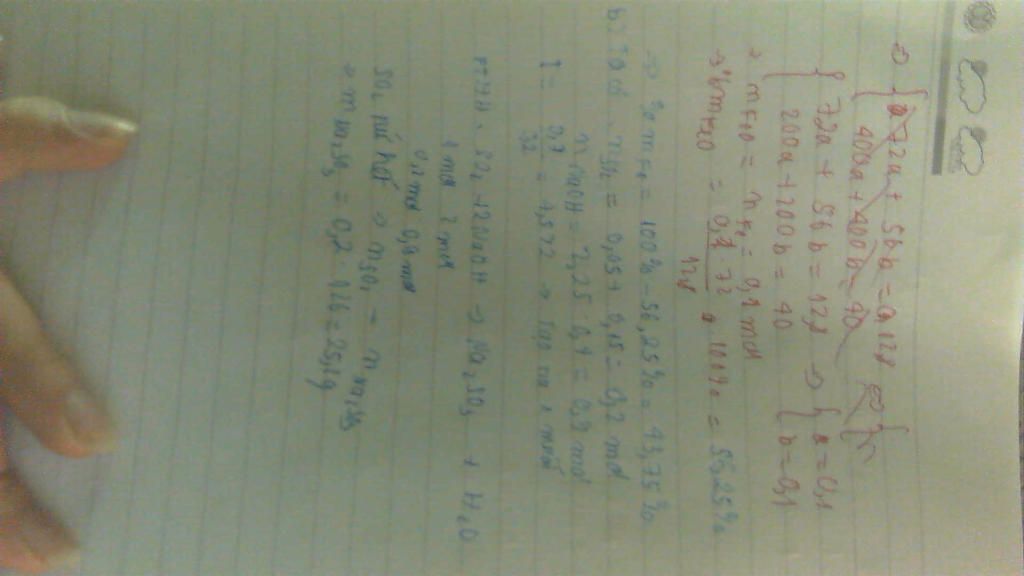 ⇒ { 72a + 56b = 0,128
400a + 400b = 40 ⇔ {
{ 72a + 56b = 12,8 ⇒ { a = 0,1
200a + 200b = 40 b = 0,1
→ mFeO = nFe = 0,1 mol
→ %mFeO = 0,1.72 / 12,8 . 100% = 56,25%
→ %mFe = 100% - 56,25% = 43,75%
b) Ta có: nSO2 = 0,05 + 0,15 = 0,2 mol
nNaOH = 2,25 . 0,4 = 0,9 mol
PTHH: SO2 + 2NaOH → Na2SO3 + H2O
1 mol 2 mol
SO2 hết ⇒ nSO2 = nNa2SO3
→ mNa2SO3 = 0,2 . 126 = 25,2g